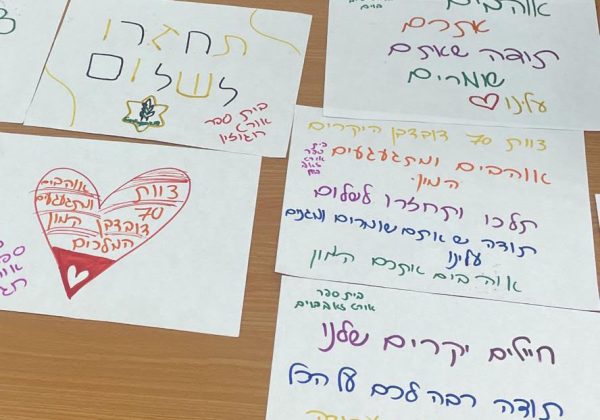 תחזרו
לשלום
בית ספר
אורא
אוהבים
אתכם
תודה שאתם
שומרים
עלינו
צוות 70 דובדבן היקרים
בית
ספר
אוהבים ומתגעגעים
המון.
תלכו ותחזרו לשלום
תודה שאתם שומרים ומגנים
עלינו
אוהבים אתכם המון
אוהבים
ומתגעגעים
המון
צוות
70
דובדבן
המלכים
בית ספר
חיילים יקרים שלנו
תודה רבה לכם על הכל